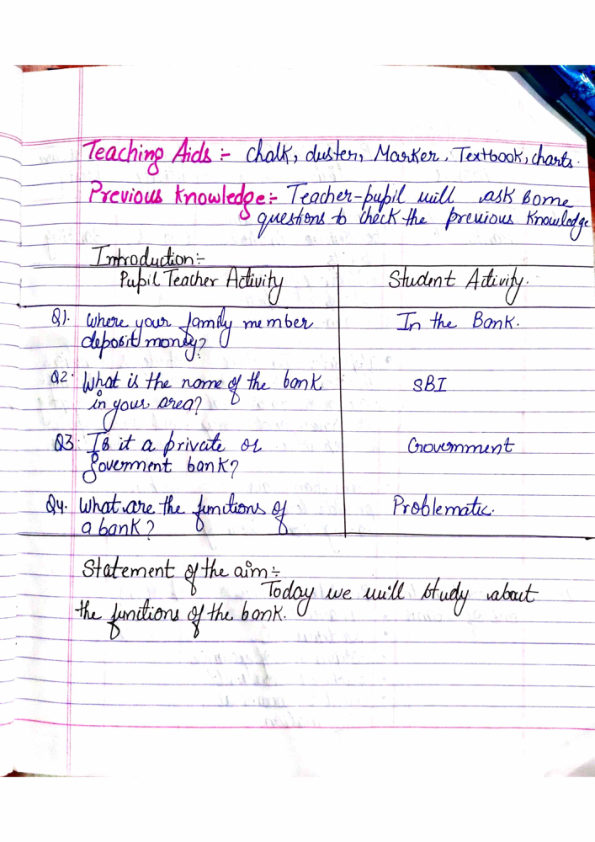 Teaching Aids :- Chalk, duster, Marker, Textbook, charts.
Previous Knowledge:- Teacher-pupil will ask some
questions to check the previous knowledge
Introduction:-
Pupil Teacher Activity
Student Activity.
Q1. Where your family member
deposit money?
In the Bank.
Q2. What is the name of the bank
in your area?
SBI
Q3. Is it a private or
Goverment bank?
Government
Q4. What are the functions of
a bank?
Problematic.
Statement of the aim:-
Today we will study about
the functions of the bank.